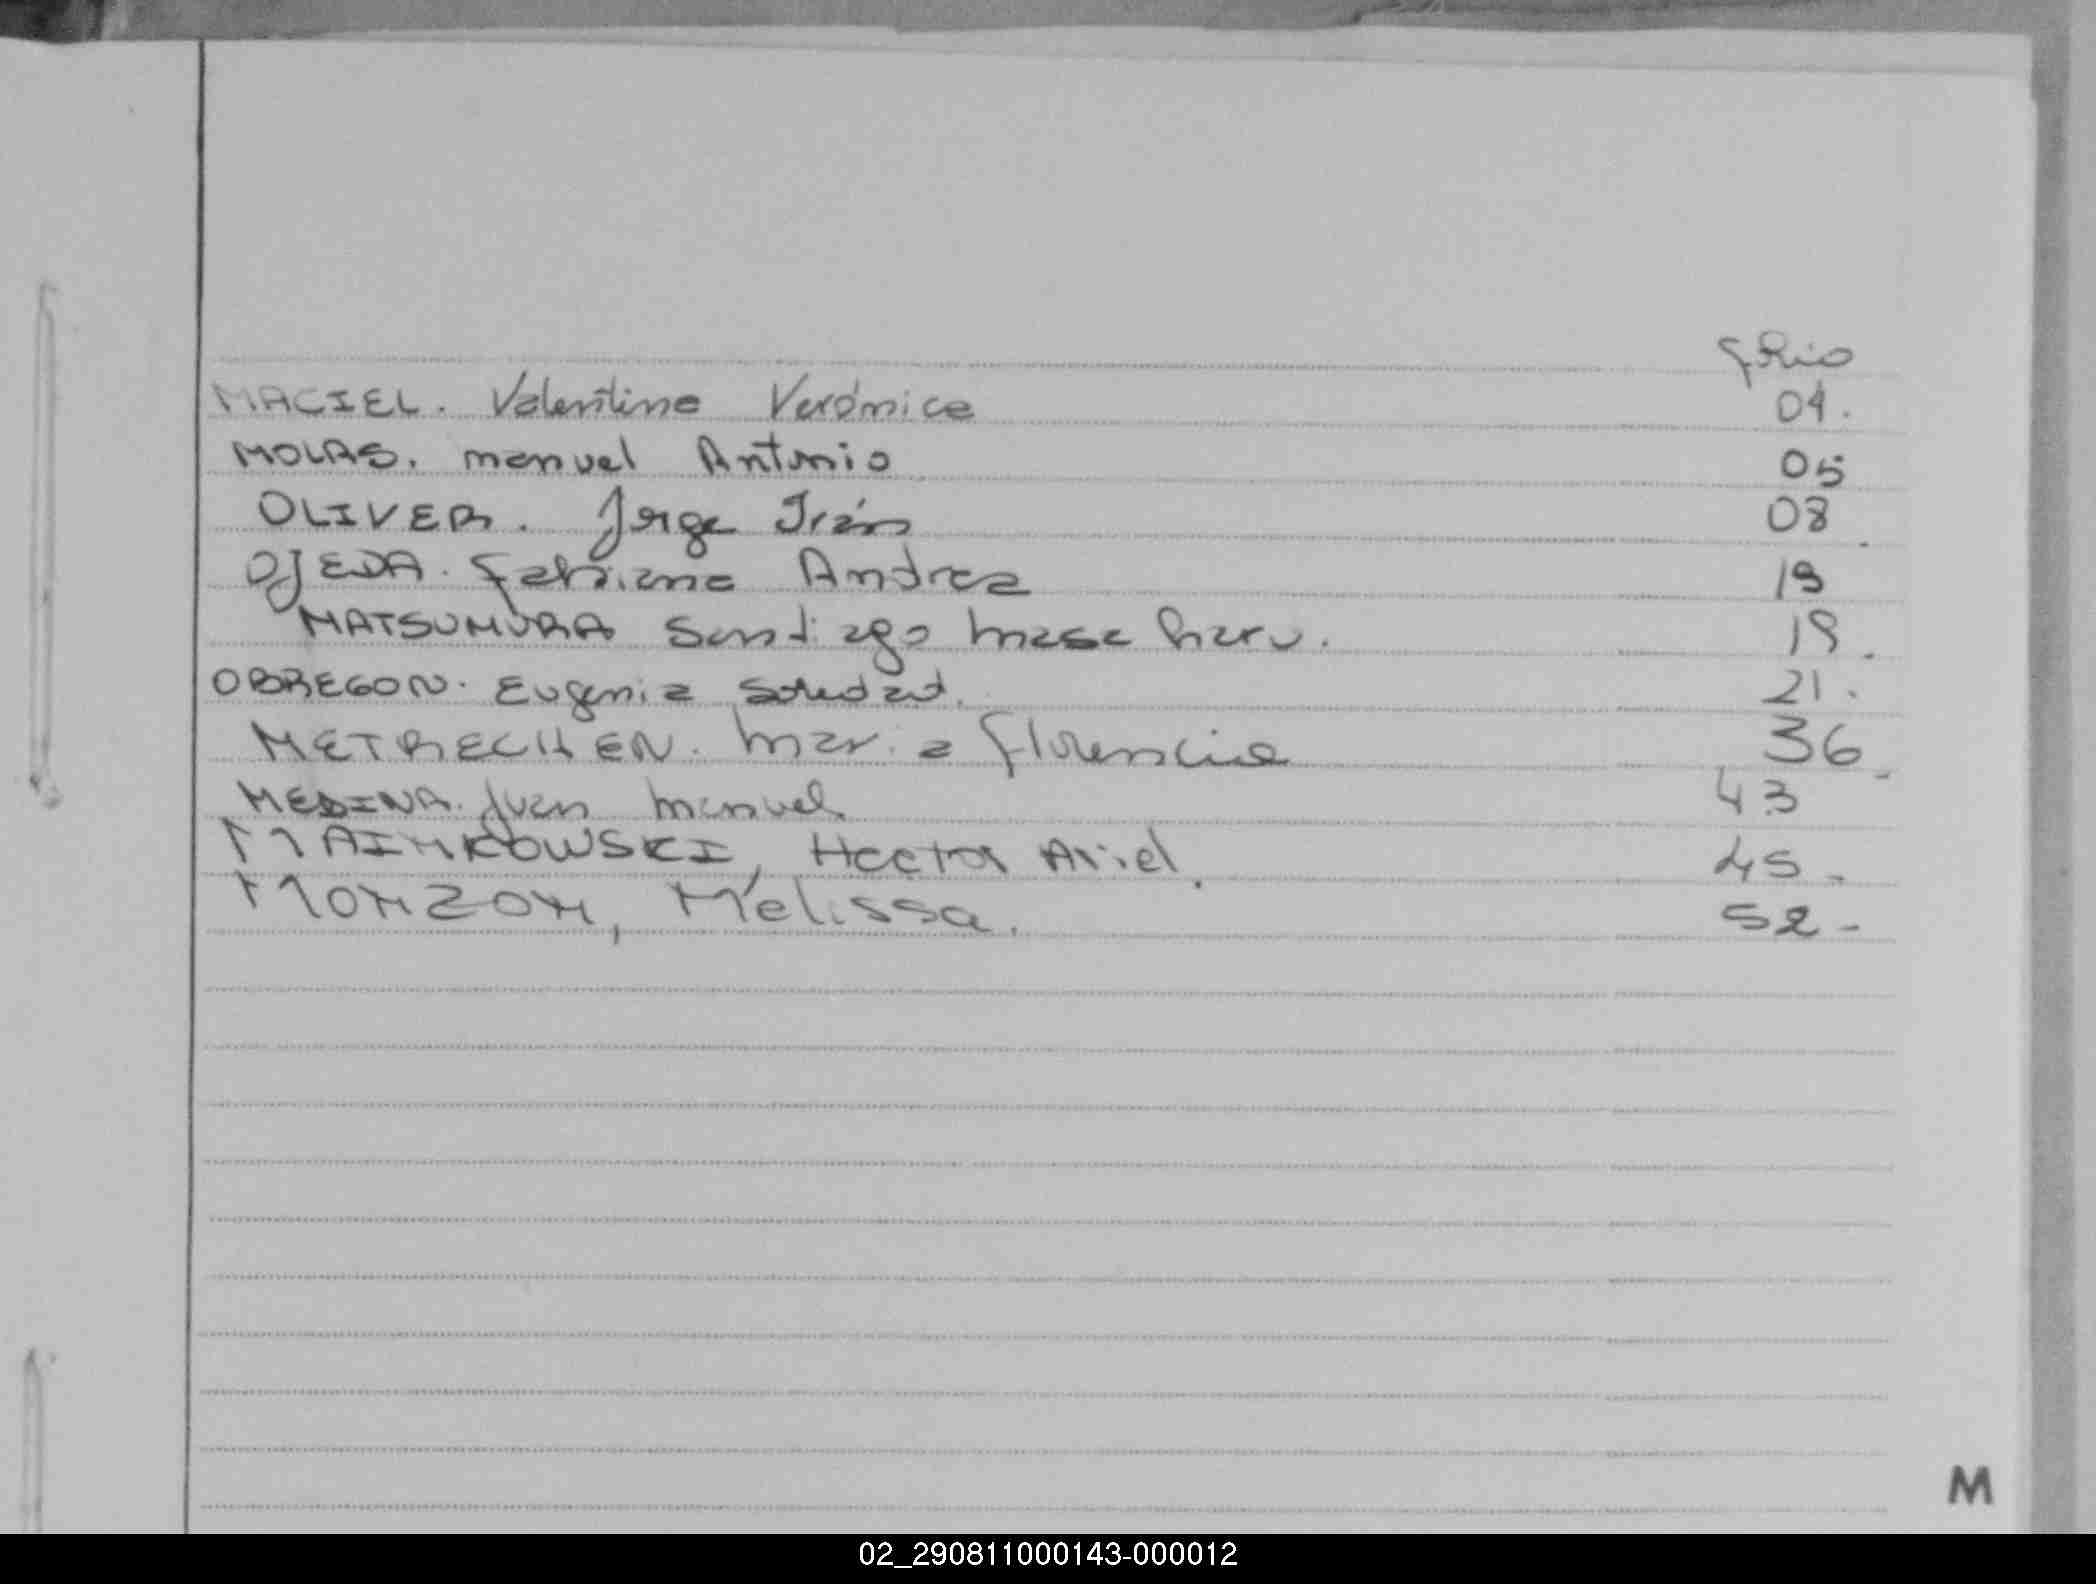 folio
MACIEL. Valentina Verónica 04.
MOLAS. Manuel Antonio 05
OLIVER. Jorge Iván 08.
OJEDA. Fabiana Andrea 19
MATSUMURA Santiago Masaharu. 19.
OBREGON. Eugenia Soledad. 21.
METRECHEN. María Florencia 36.
MEDINA. Juan Manuel. 43
MAINKOWSKI, Hector Ariel. 45.
MONZON, Melissa. 52-
M
02_290811000143-000012